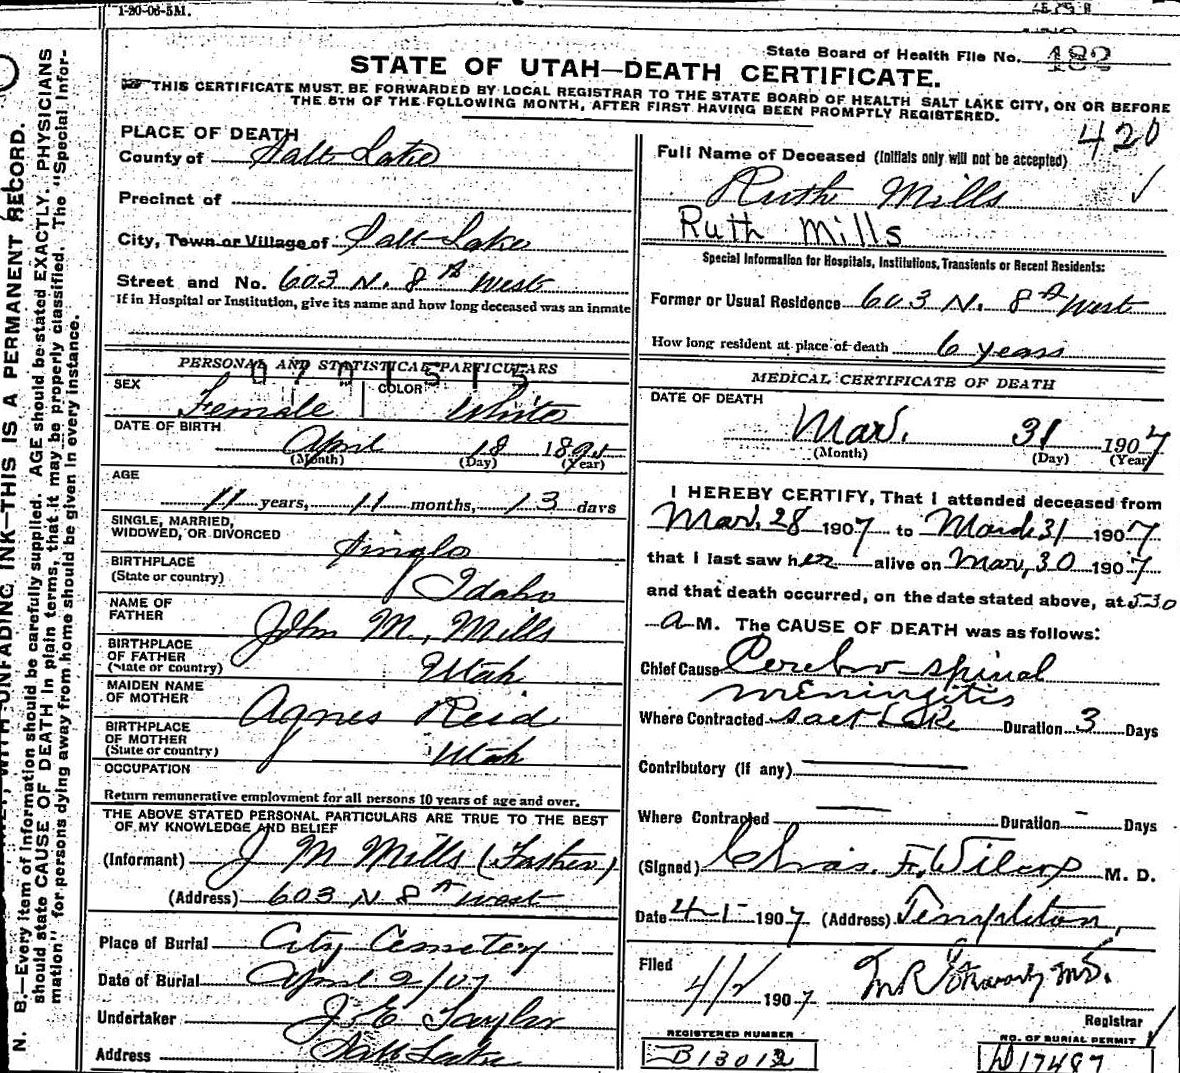 1-20-06-5M.
State Board of Health File No. 482
STATE OF UTAH—DEATH CERTIFICATE.
THIS CERTIFICATE MUST BE FORWARDED BY LOCAL REGISTRAR TO THE STATE BOARD OF HEALTH SALT LAKE CITY, ON OR BEFORE
THE 5TH OF THE FOLLOWING MONTH, AFTER FIRST HAVING BEEN PROMPTLY REGISTERED.
420
PLACE OF DEATH
County of Salt Lake
Precinct of
City, Town or Village of Salt Lake
Street and No. 603 N. 8th West
If in Hospital or Institution, give its name and how long deceased was an inmate
PERSONAL AND STATISTICAL PARTICULARS
SEX Female COLOR White
DATE OF BIRTH April 18 1895
(Month) (Day) (Year)
AGE
11 years, 11 months, 13 days
SINGLE, MARRIED,
WIDOWED, OR DIVORCED Single
BIRTHPLACE
(State or country) Idaho
NAME OF
FATHER John M. Mills
BIRTHPLACE
OF FATHER
(State or country) Utah
MAIDEN NAME
OF MOTHER Agnes Reid
BIRTHPLACE
OF MOTHER
(State or country) Utah
OCCUPATION
Return remunerative employment for all persons 10 years of age and over.
THE ABOVE STATED PERSONAL PARTICULARS ARE TRUE TO THE BEST
OF MY KNOWLEDGE AND BELIEF
(Informant) J M Mills (Father)
(Address) 603 N 8th West
Place of Burial City Cemetery
Date of Burial April 2/07
Undertaker J. E Taylor
Address Salt Lake
Full Name of Deceased (Initials only will not be accepted)
Ruth Mills
Ruth Mills
Special Information for Hospitals, Institutions, Transients or Recent Residents:
Former or Usual Residence 603 N. 8th West
How long resident at place of death 6 years
MEDICAL CERTIFICATE OF DEATH
DATE OF DEATH
Mar. 31 1907
(Month) (Day) (Year)
I HEREBY CERTIFY, That I attended deceased from
Mar. 28 1907 to March 31 1907
that I last saw her alive on Mar, 30 1907
and that death occurred, on the date stated above, at 5-30
a M. The CAUSE OF DEATH was as follows:
Chief Cause Cerebro-spinal
meningitis
Where Contracted Salt Lake Duration 3 Days
Contributory (if any)
Where Contracted Duration - Days
(Signed) Chas. F. Wilcox M. D.
Date 4-1- 1907 (Address) Templeton,
Filed 4/2 1907
Registrar
REGISTERED NUMBER
B13012
NO. OF BURIAL PERMIT
D17487
N. B.—Every item of information should be carefully supplied. AGE should be stated EXACTLY. PHYSICIANS
should state CAUSE OF DEATH in plain terms, that it may be properly classified. The "Special Infor-
mation" for persons dying away from home should be given in every instance.
WITH UNFADING INK—THIS IS A PERMANENT RECORD.